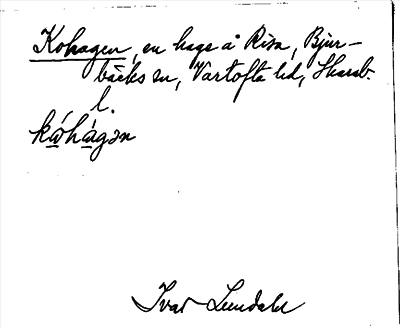 Kohagen, en hage å Risa, Bjur-
bäcks sn, Vartofta hd, Skarab.
l.
kóhágən
Ivar Lundahl